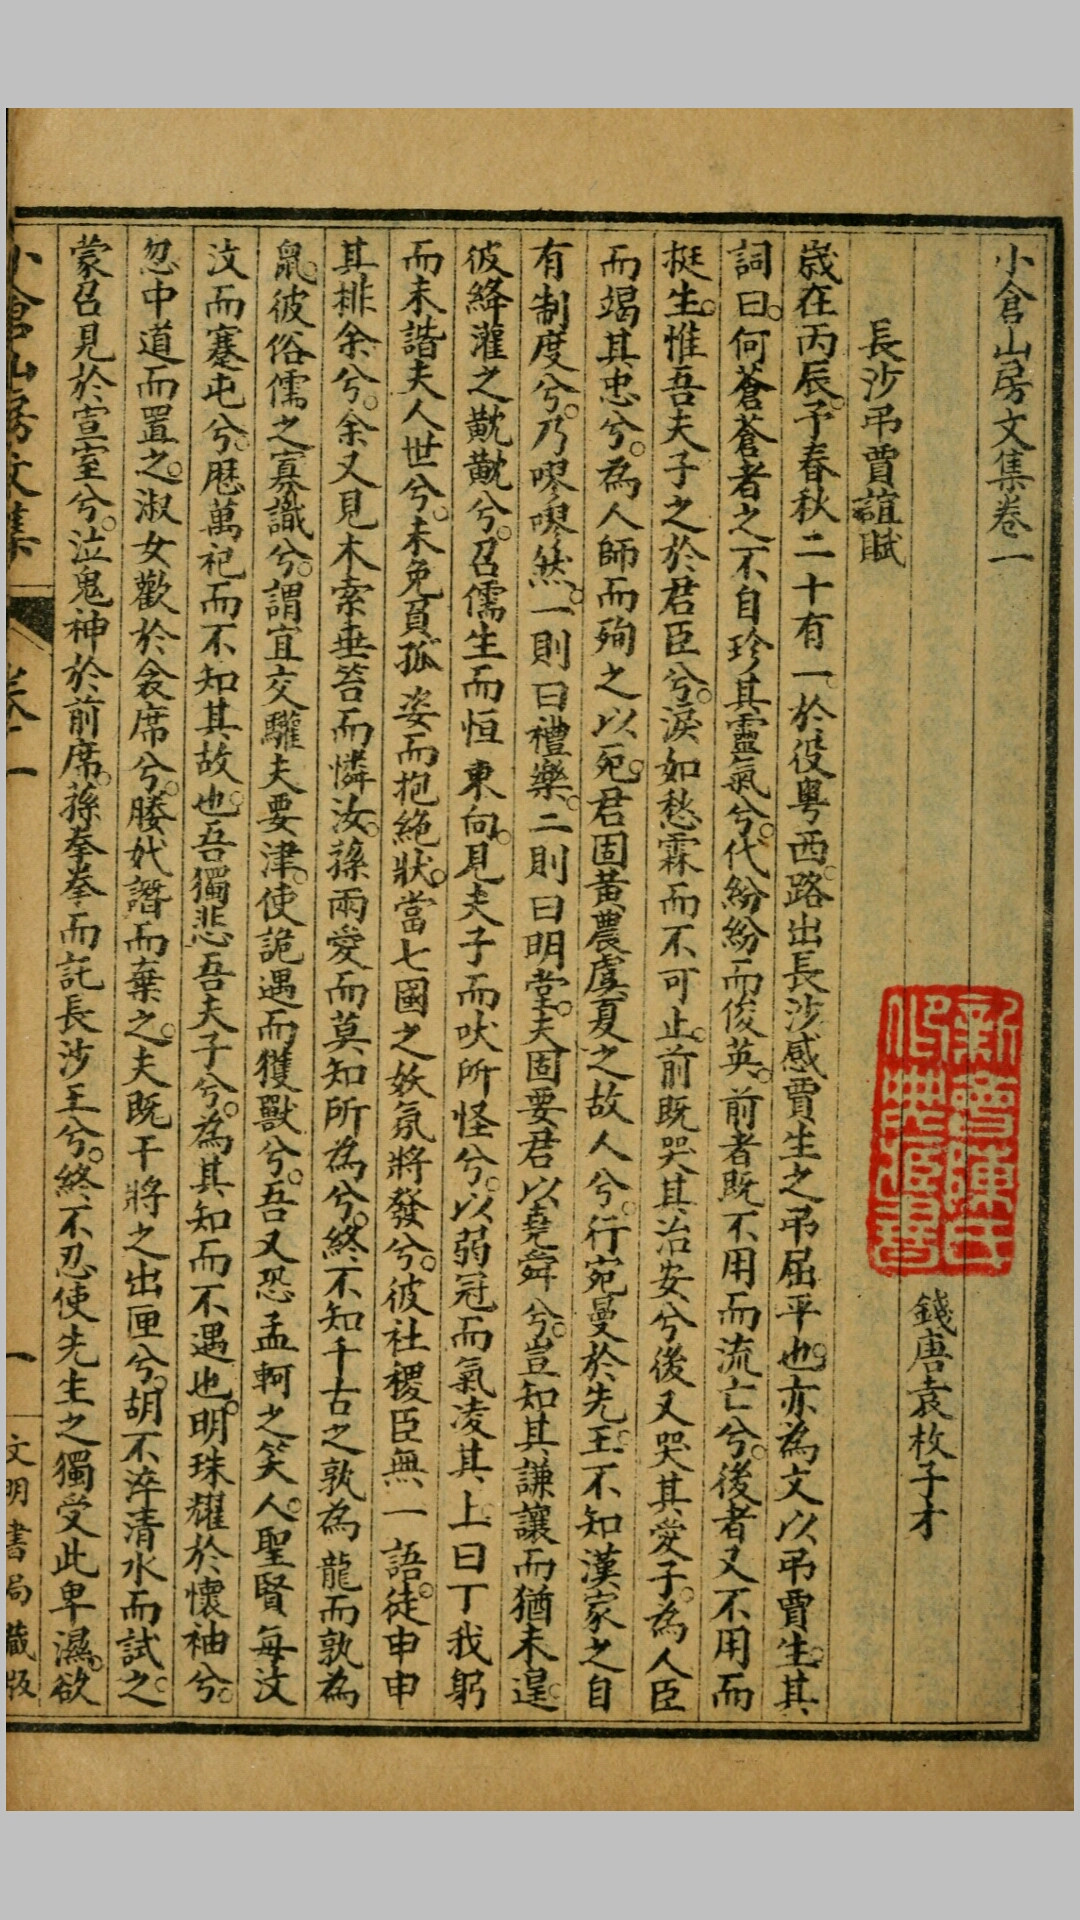 小倉山房文集卷一
錢唐袁枚子才
長沙弔賈誼賦
歲在丙辰。予春秋二十有一。於役粵西。路出長沙。感賈生之弔屈平也。亦為文以弔賈生。其
詞曰。何蒼蒼者之不自珍其靈氣兮。代紛紛而俊英。前者既不用而流亡兮。後者又不用而
挺生。惟吾夫子之於君臣兮。淚如愁霖而不可止。前既哭其治安兮後又哭其愛子。為人臣
而竭其忠兮。為人師而殉之以死。君固黃農虞夏之故人兮。行宛曼於先王。不知漢家之自
有制度兮。乃嘐嘐然。一則曰禮樂。二則曰明堂。夫固要君以堯舜兮。豈知其謙讓而猶未遑。
彼絳灌之戇戇兮。召儒生而恒東向。見夫子而吠所怪兮。以弱冠而氣凌其上曰丁我躬
而未諧夫人世兮。未免負孤姿而抱絕狀。當七國之妖氛將發兮。彼社稷臣無一語。徒申申
其排余兮。余又見木索垂笞而憐汝。蓀兩愛而莫知所為兮。終不知千古之孰為龍而孰為
鼠。彼俗儒之寡識兮。謂宜交驩夫要津。使詭遇而獲獸兮。吾又恐孟軻之笑人。聖賢每汶
汶而蹇屯兮。歷萬祀而不知其故也。吾獨悲吾夫子兮。為其知而不遇也。明珠耀於懷袖兮。
忽中道而置之。淑女歡於衾席兮。媵妭譖而棄之。夫既干將之出匣兮。胡不淬清水而試之。
蒙召見於宣室兮。泣鬼神於前席。蓀拳拳而託長沙王兮。終不忍使先生之獨受此卑濕。欲
小倉山房文集
卷一
一
文明書局藏版